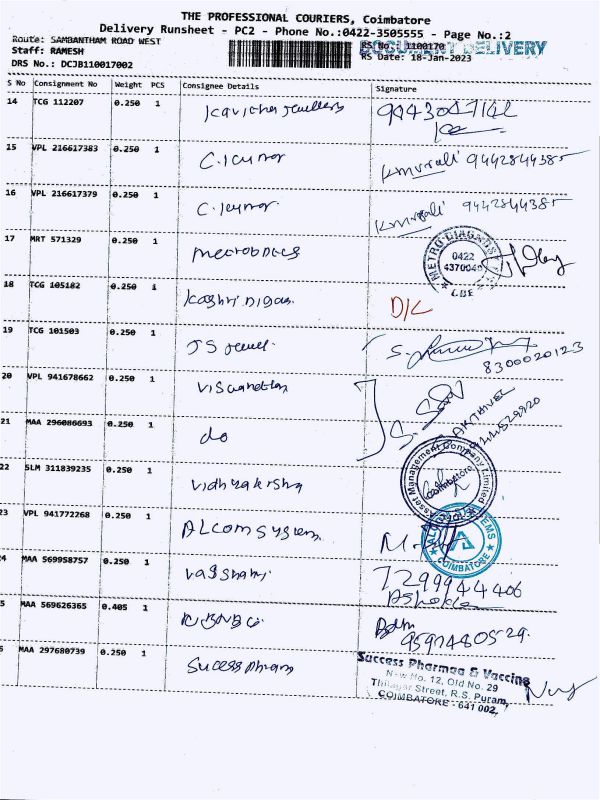 THE PROFESSIONAL COURIERS, Coimbatore
Delivery Runsheet - PC2 - Phone No.:0422-3505555 - Page No.:2
Route: SAMBANTHAM ROAD WEST
RS No.: 1100170
DOCUMENT DELIVERY
Staff: RAMESH
RS Date: 18-Jan-2023
DRS No.: DCJB110017002
S No Consignment No Weight PCS Consignee Details Signature
14 TCG 112207 0.250 1 Kavitha Jewellers
15 VPL 216617383 0.250 1 C. Kumar Kmurali 9442844385
16 VPL 216617379 0.250 1 C. Kumar Kmurali 9442844385
17 MRT 571329 0.250 1 METRO DIAGNOS
0422
4370040
CBE
18 TCG 105182 0.250 1 D/L
19 TCG 101503 0.250 1 JS Jewell. S.
8300020123
20 VPL 941678662 0.250 1
21 MAA 296086693 0.250 1 do S. SAKTHIVEL
22 SLM 311839235 0.250 1 Asset Management Company Limited
Coimbatore
23 VPL 941772268 0.250 1 Alcom Systems
COIMBATORE
24 MAA 569958757 0.250 1 7299944406
Ashokan
MAA 569626365 0.405 1
MAA 297680739 0.250 1 Sucess Pharm
Success Pharmaa & Vaccine
New No. 12, Old No. 29
Thilagar Street, R.S. Puram,
COIMBATORE - 641 002.